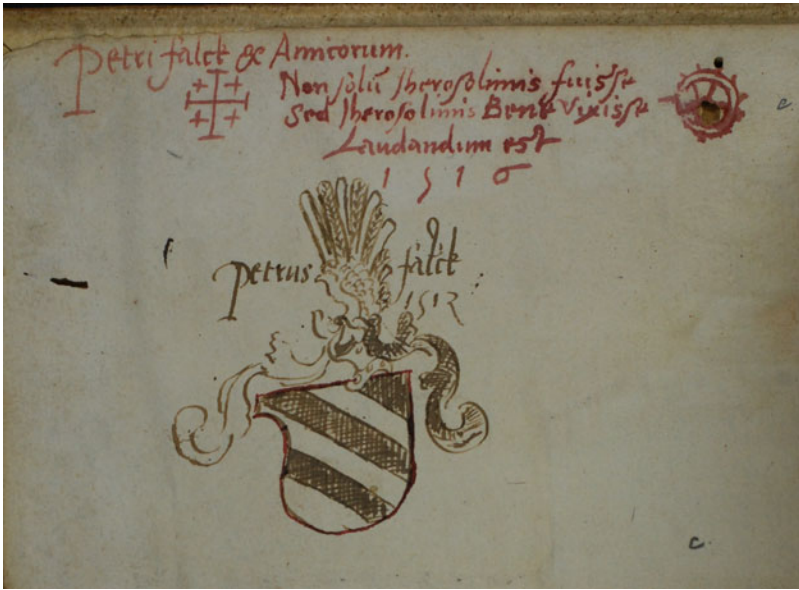 Petri falck & Amicorum.
Non solū Iherosolimis fuisse
Sed Iherosolimis Bene Vixisse
Laudandum est
1516
Petrus falck
1512
c
c.